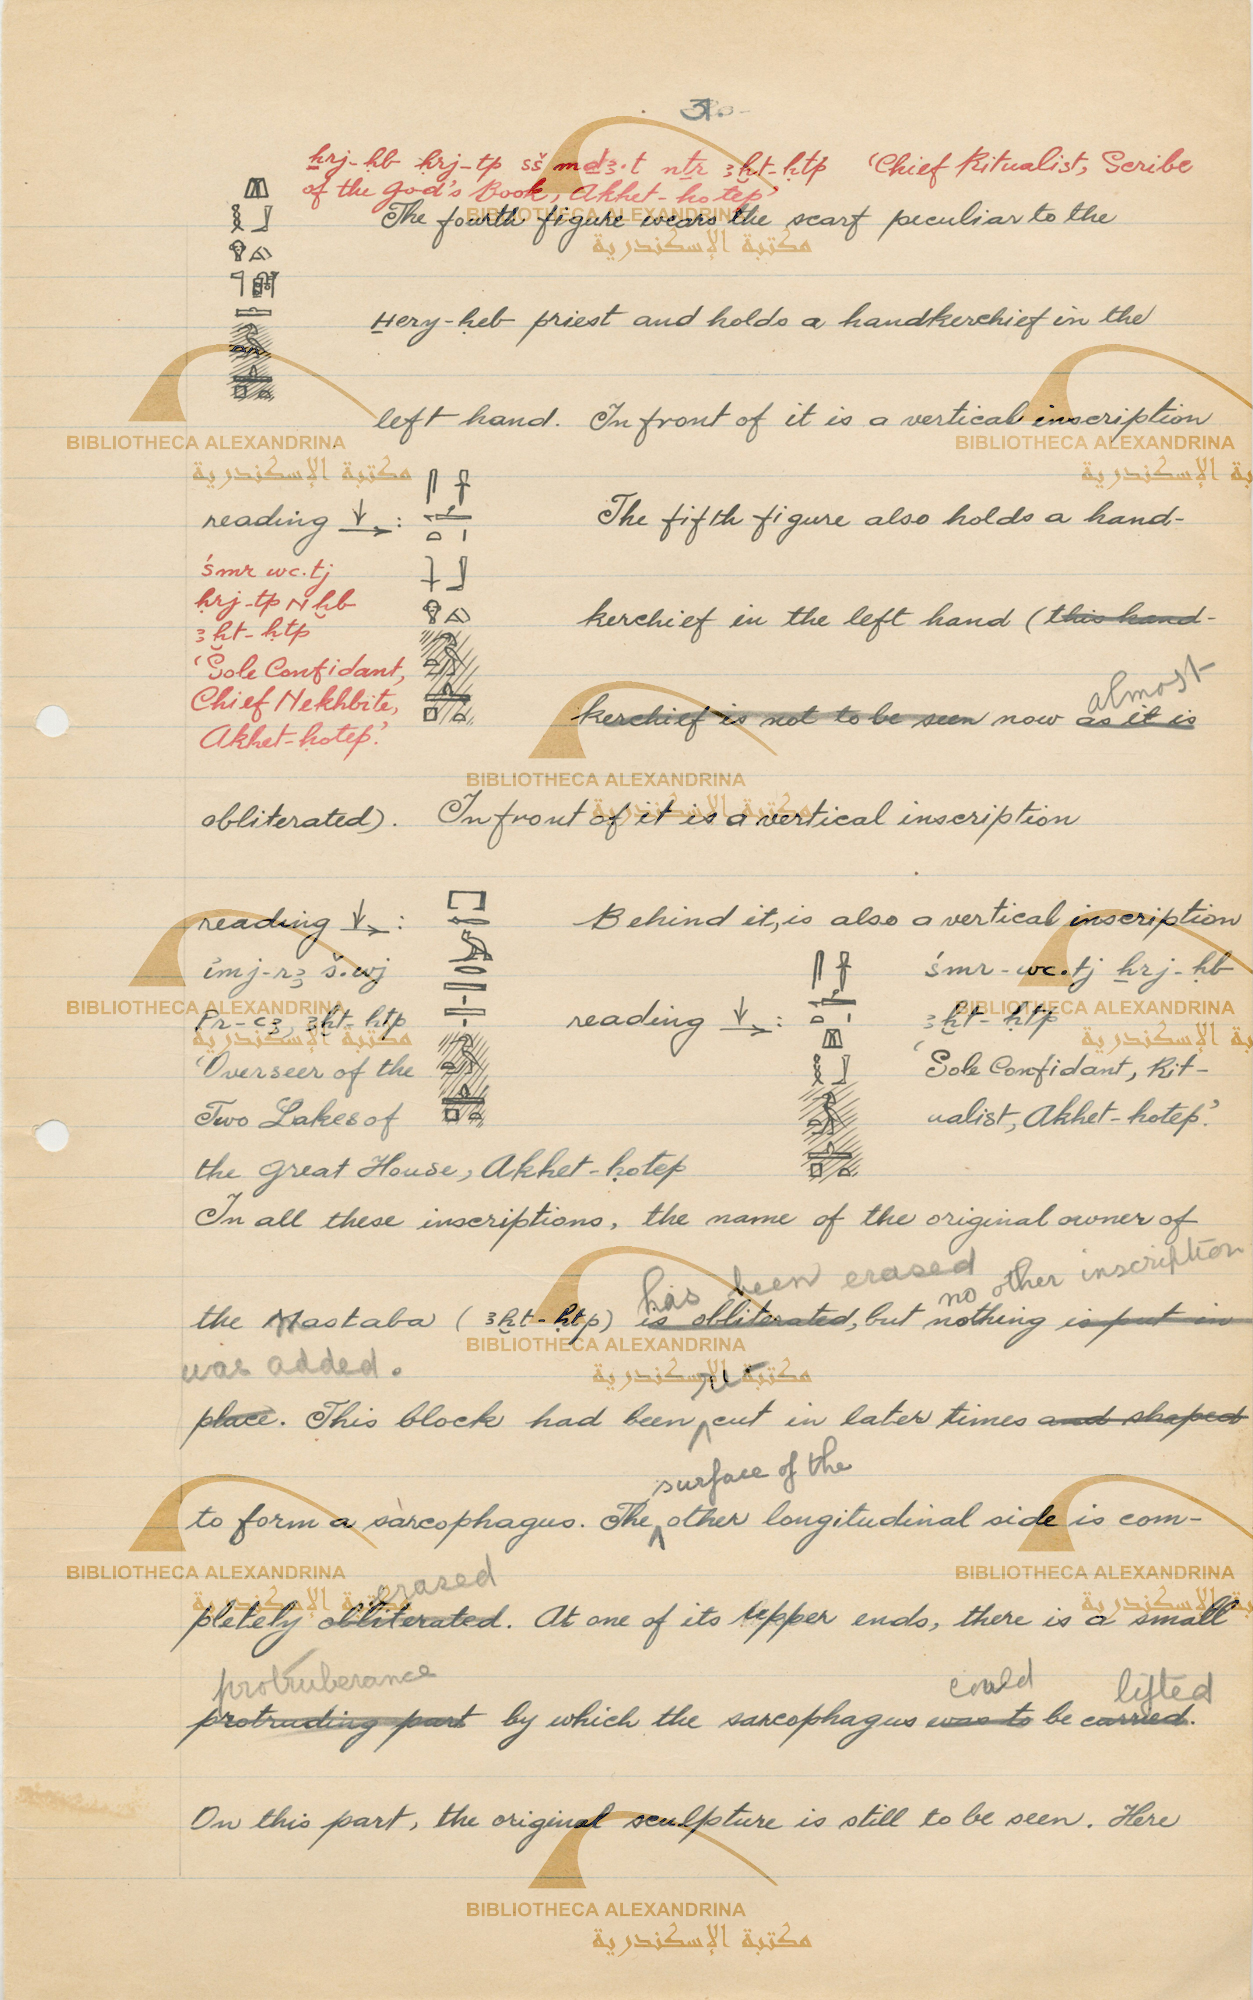 31.
ẖrj-ḥb ḥrj-tp sš mḏꜣ.t nṯr ꜣḫt-ḥtp 'Chief Ritualist, Scribe
of the god's Book, Akhet-hotep'
The fourth figure wears the scarf peculiar to the
Hery-ḥeb priest and holds a handkerchief in the
left hand. In front of it is a vertical inscription
reading ↓→:
The fifth figure also holds a hand-
śmr wc.tj
ḥrj-tp Nḫb
ꜣḫt-ḥtp
'Sole Confidant,
Chief Nekhbite,
Akhet-ḥotep.'
kerchief in the left hand (this hand-
almost
kerchief is not to be seen now as it is
obliterated). In front of it is a vertical inscription
reading ↓→:
Behind it, is also a vertical inscription
ímj-rꜣ š.wj
Pr-cꜣ, ꜣḫt-ḥtp
'Overseer of the
Two Lakes of
the Great House, Akhet-ḥotep
reading ↓→:
śmr-wc.tj ẖrj-ḥb
ꜣḫt-ḥtp
'Sole Confidant, Rit-
ualist, Akhet-hotep.'
In all these inscriptions, the name of the original owner of
has been erased no other inscription
the Mastaba (ꜣḫt-ḥtp) is obliterated, but nothing is put in
was added.
place. This block had been cut in later times and shaped
surface of the
to form a sarcophagus. The other longitudinal side is com-
erased
pletely obliterated. At one of its upper ends, there is a small
protruberance could lifted
protruding part by which the sarcophagus was to be carried.
On this part, the original sculpture is still to be seen. Here
BIBLIOTHECA ALEXANDRINA
مكتبة الإسكندرية